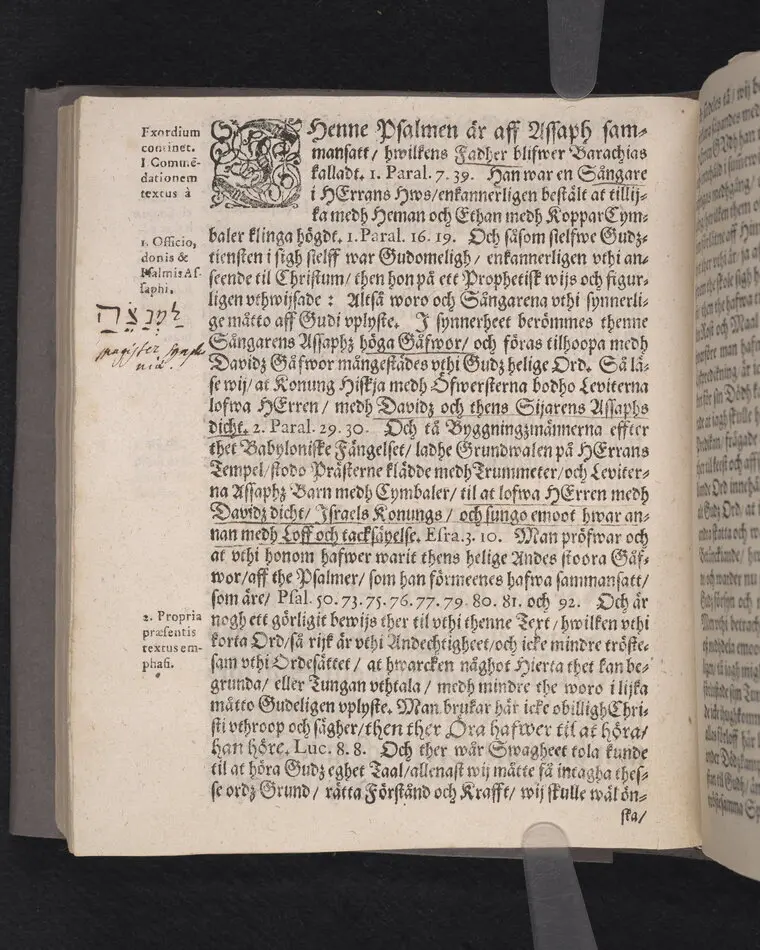 Exordium
continet.
1 Comme̅-
dationem
textus à
1. Officio,
donis &
Psalmis As-
saphi.
לַמְנַצֵּהַ
magister symph
nia.
2. Propria
præsentis
textus em-
phasi.
THenne Psalmen är aff Assaph sam-
mansatt/ hwilkens Fadher blifwer Barachias
kalladt. 1. Paral. 7. 39. Han war en Sångare
i HErrans Hws/ enkannerligen bestält at tillij-
ka medh Heman och Ethan medh KopparCym-
baler klinga högdt. 1. Paral. 16. 19. Och såsom sielfwe Gudz-
tiensten i sigh sielff war Gudomeligh/ enkannerligen vthi an-
seende til Christum/ then hon på ett Prophetisk wijs och figur-
ligen vthwijsade: Altså woro och Sångarena vthi synnerli-
ge måtto aff Gudi vplyste. I synnerheet berömmes thenne
Sångarens Assaphz höga Gåfwor/ och föras tilhoopa medh
Davidz Gåfwor mångestädes vthi Gudz helige Ord. Så lä-
se wij/ at Konung Hiskja medh Öfwersterna bodho Leviterna
lofwa HErren/ medh Davidz och thens Sijarens Assaphs
dicht. 2. Paral. 29. 30. Och tå Byggningzmännerna effter
thet Babyloniske Fängelset/ ladhe Grundwalen på HErrans
Tempel/ stodo Prästerne klädde medh Trummeter/ och Leviter-
na Assaphz Barn medh Cymbaler/ til at lofwa HErren medh
Davidz dicht/ Israels Konungs/ och sungo emoot hwar an-
nan medh Loff och tacksäyelse. Esra. 3. 10. Man pröfwar och
at vthi honom hafwer warit thens helige Andes stoora Gåf-
wor/ aff the Psalmer/ som han förmeenes hafwa sammansatt/
som äre/ Psal. 50. 73. 75. 76. 77. 79. 80. 81. och 92. Och är
nogh ett görligit bewijs ther til vthi thenne Text/ hwilken vthi
korta Ord/ så rijk är vthi Andechtigheet/ och icke mindre tröste-
sam vthi Ordesättet/ at hwarcken någhot Hierta thet kan be-
grunda/ eller Tungan vthtala/ medh mindre the woro i lijka
måtto Gudeligen vplyste. Man brukar här icke obilligh Chri-
sti vthroop och sägher/ then ther Öra hafwer til at höra/
han höre. Luc. 8. 8. Och ther wår Swagheet tola kunde
til at höra Gudz eghet Taal/ allenast wij måtte få intagha thes-
se ordz Grund/ rätta Förstånd och Krafft/ wij skulle wäl ön-
ska/